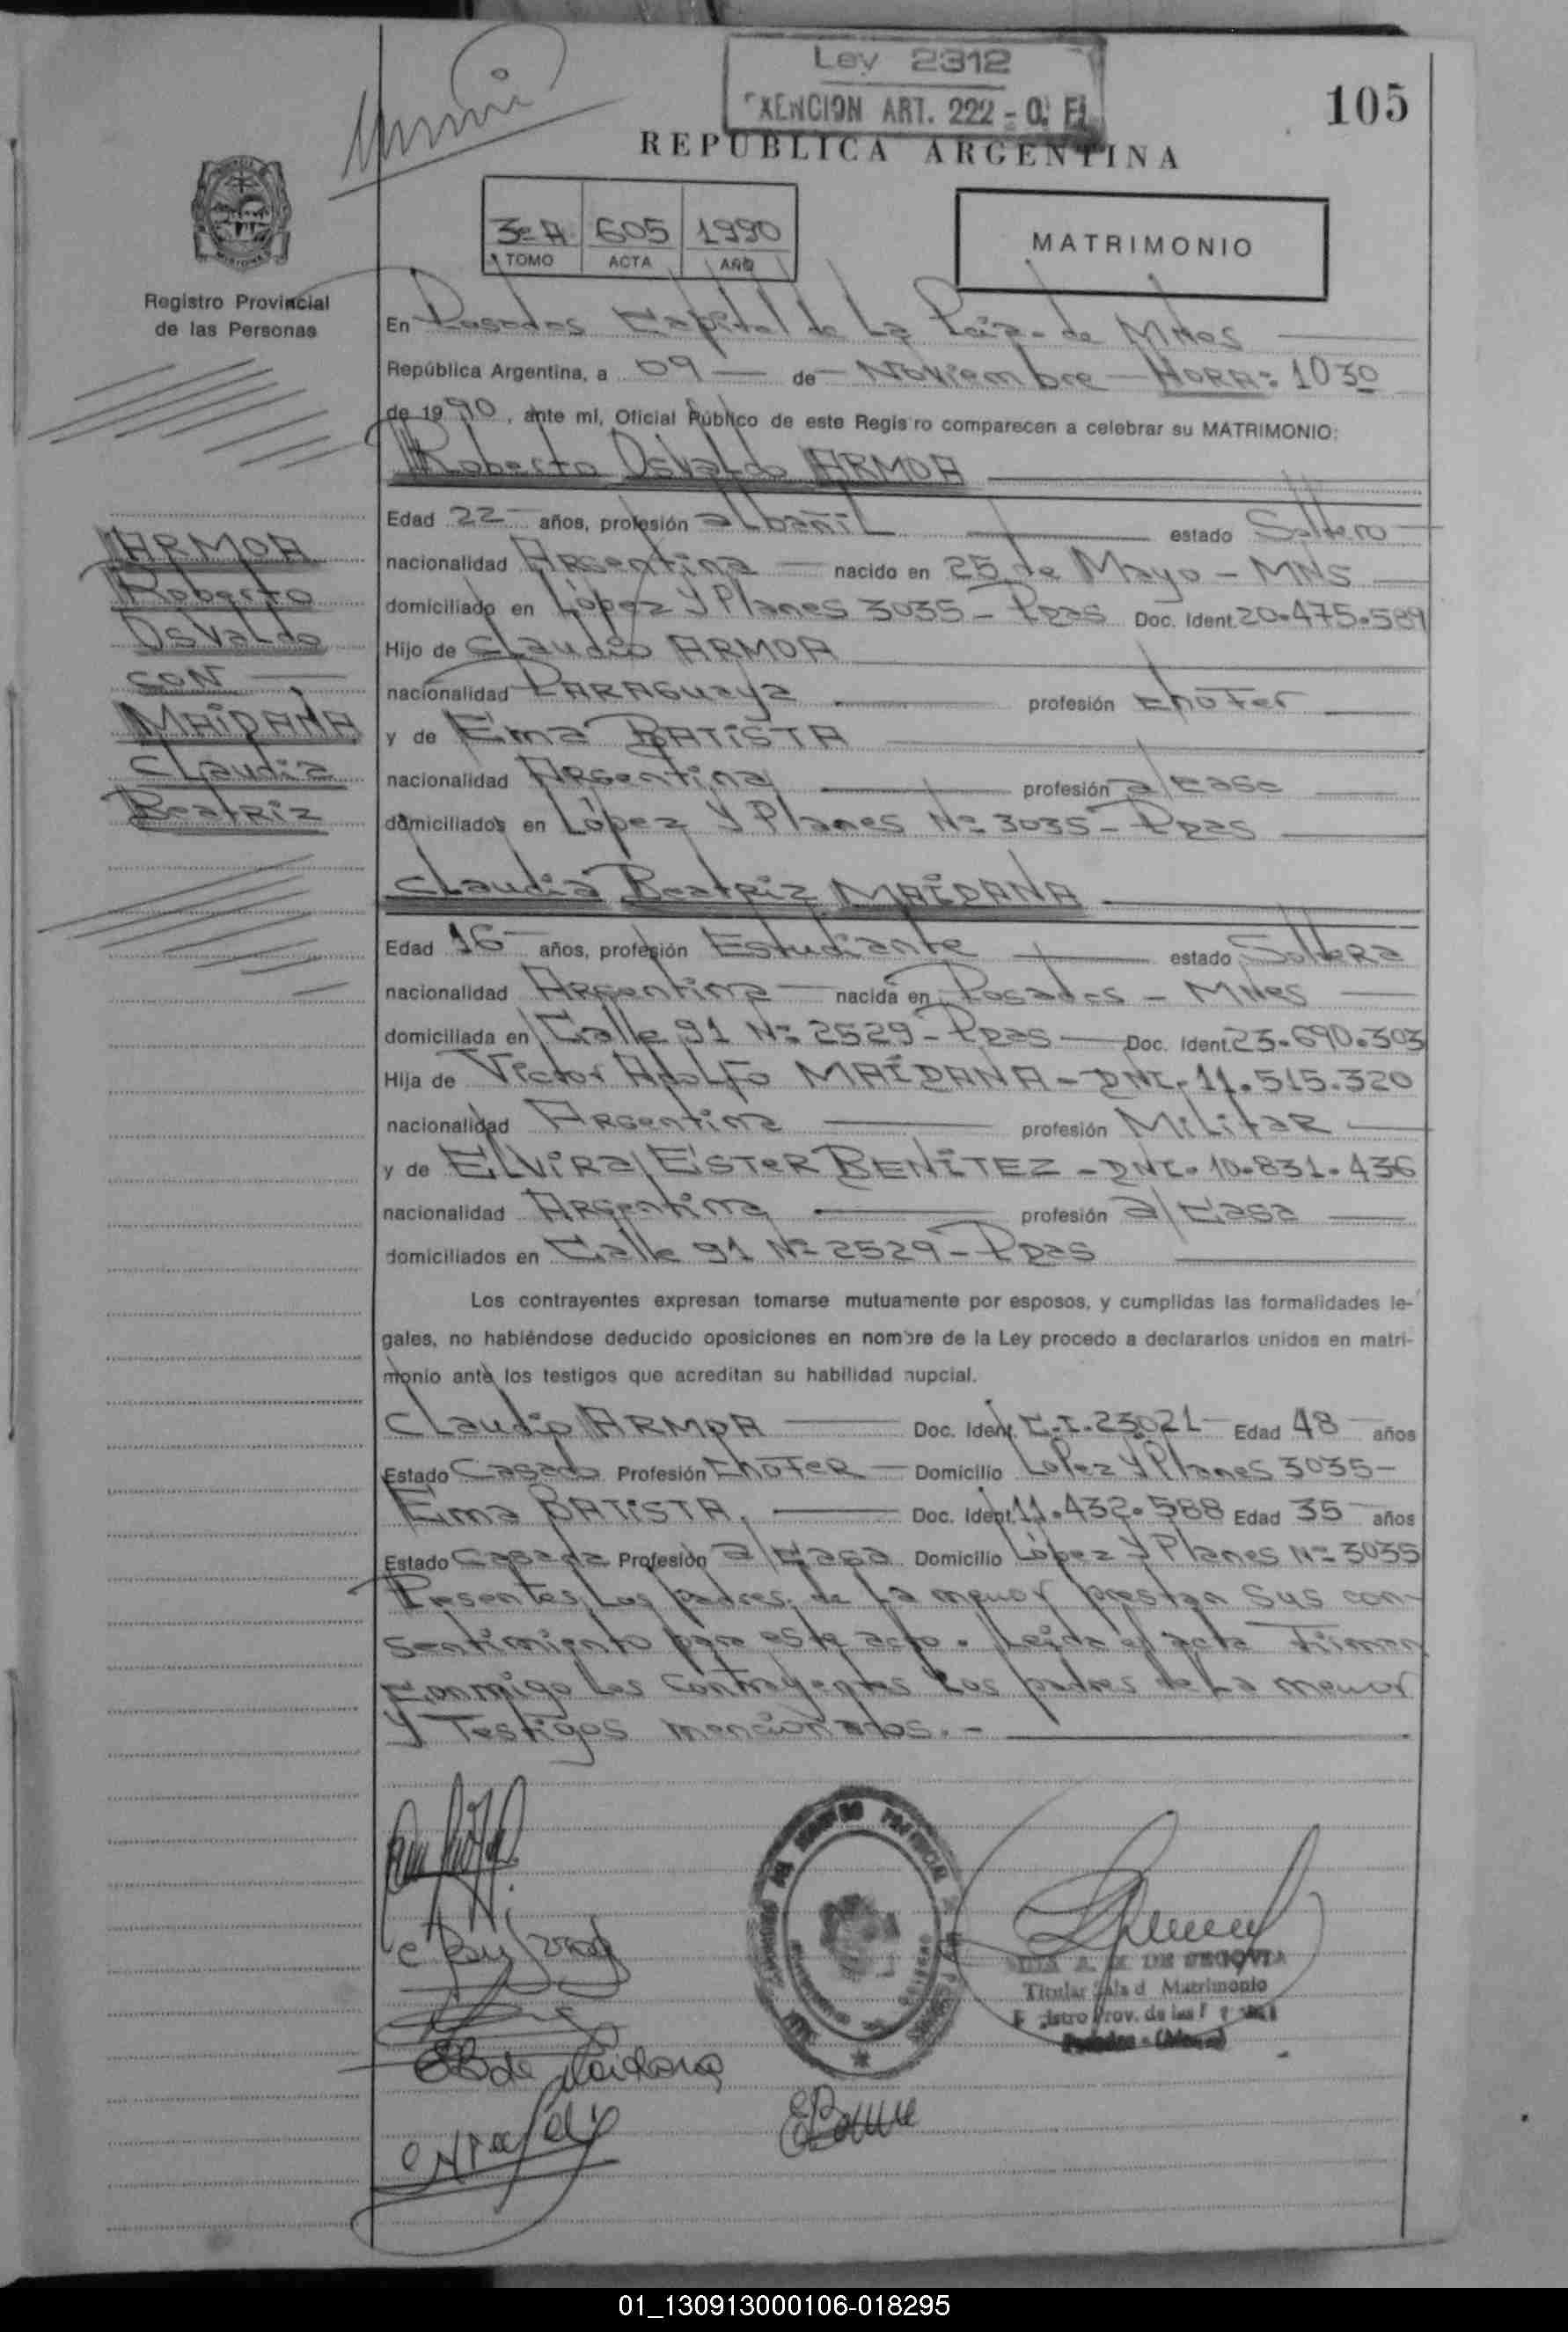 Ley 2312
EXENCION ART. 222 - O. F.
105
REPUBLICA ARGENTINA
3º A 605 1990
TOMO ACTA AÑO
MATRIMONIO
Registro Provincial
de las Personas
En Posadas Capital de La Pcia. de Mnes
República Argentina, a 09 de Noviembre - HORA: 1030
de 1990, ante mí, Oficial Público de este Registro comparecen a celebrar su MATRIMONIO:
Roberto Osvaldo ARMOA
Edad 22 años, profesión albañil estado Soltero
nacionalidad Argentina nacido en 25 de Mayo - MNS
domiciliado en López y Planes 3035 - Pdas Doc. Ident. 20.475.589
Hijo de Claudio ARMOA
nacionalidad PARAGuaya profesión chofer
y de Ema BATISTA
nacionalidad Argentina profesión a/casa
domiciliados en López y Planes Nº 3035 - Pdas
ARMOA
Roberto
Osvaldo
CON
MAIDANA
Claudia
Beatriz
Claudia Beatriz MAIDANA
Edad 16 años, profesión Estudiante estado Soltera
nacionalidad Argentina nacida en Posadas - Mnes
domiciliada en Calle 91 Nº 2529 - Pdas Doc. Ident. 23.690.303
Hija de Victor Adolfo MAIDANA - DNI. 11.515.320
nacionalidad Argentina profesión Militar
y de ELVIRA ESTER BENITEZ - DNI. 10.831.436
nacionalidad Argentina profesión a/casa
domiciliados en Calle 91 Nº 2529 - Pdas
Los contrayentes expresan tomarse mutuamente por esposos, y cumplidas las formalidades le-
gales, no habiéndose deducido oposiciones en nombre de la Ley procedo a declararlos unidos en matri-
monio ante los testigos que acreditan su habilidad nupcial.
Claudio ARMOA Doc. Ident. C.I. 23.021 Edad 48 años
Estado Casado Profesión chofer Domicilio López y Planes 3035 -
Ema BATISTA, Doc. Ident. 11.432.588 Edad 35 años
Estado Casada Profesión a/casa Domicilio López y Planes Nº 3035
Presentes Los padres de La menor prestan sus con-
sentimiento para este acto. Leída el acta Firman
conmigo Los Contrayentes Los padres de La menor
y Testigos mencionados.-
A. M. DE SEGOVIA
Titular Sala d Matrimonio
Registro Prov. de las P
Posadas - (Mnes)
EB de Maidana
01_130913000106-018295